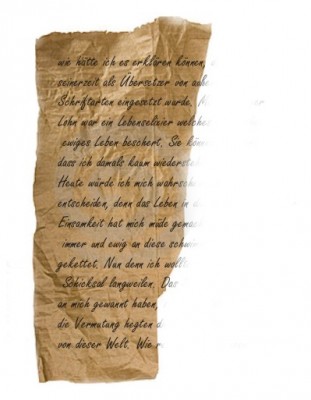 wie hätte ich es erklären können, d
seinerzeit als Übersetzer von auße
Schriftarten eingesetzt wurde. M
Lohn war ein Lebenselixier welche
ewiges Leben beschert. Sie könn
dass ich damals kaum widersteh
Heute würde ich mich wahrsch
entscheiden, denn das Leben in d
Einsamkeit hat mich müde gemac
immer und ewig an diese schwer
gekettet. Nun denn ich wollt
Schicksal langweilen. Das
an mich gewannt haben,
die Vermutung hegten d
von dieser Welt. Wie r